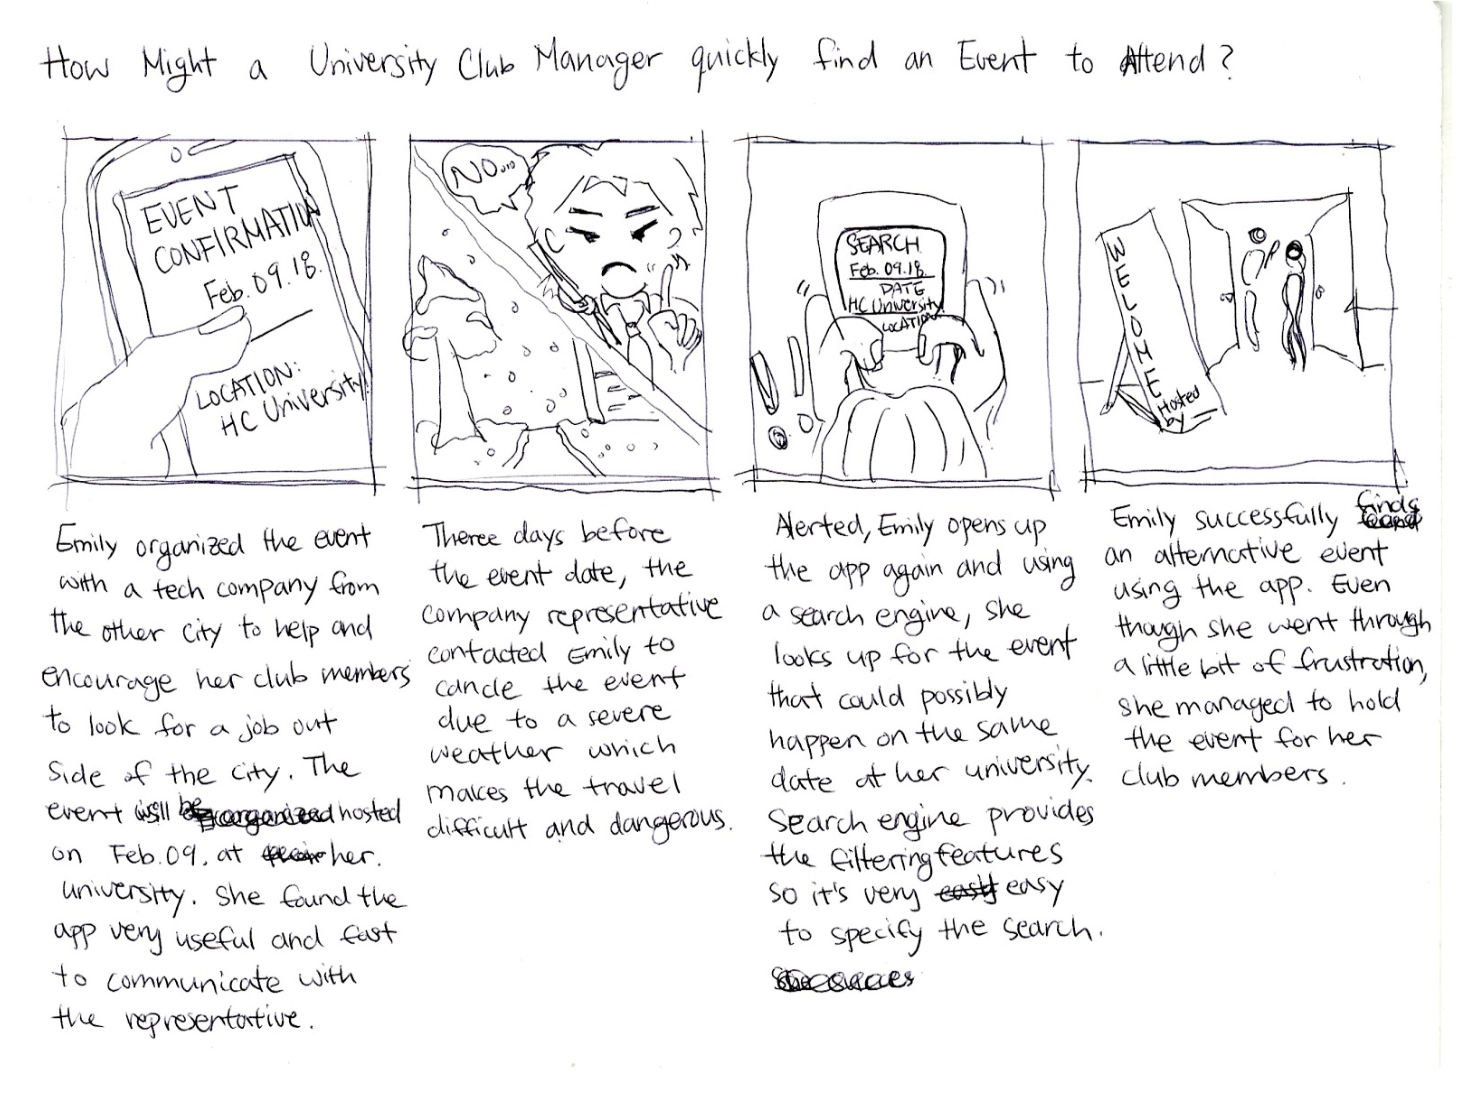 How Might a University Club Manager quickly find an Event to Attend?
EVENT
CONFIRMATION
Feb. 09. 18.
LOCATION:
HC University
NO...
SEARCH
Feb. 09. 18.
DATE
HC University
LOCATION
WELOME
Hosted
by
Emily organized the event
with a tech company from
the other city to help and
encourage her club members
to look for a job out
side of the city. The
event will be hosted
on Feb. 09. at her.
university. She found the
app very useful and fast
to communicate with
the representative.
Theree days before
the event date, the
company representative
contacted Emily to
cancle the event
due to a severe
weather which
makes the travel
difficult and dangerous.
Alerted, Emily opens up
the app again and using
a search engine, she
looks up for the event
that could possibly
happen on the same
date at her university.
Search engine provides
the filtering features
so it's very easy
to specify the search.
Emily successfully finds
an alternative event
using the app. Even
though she went through
a little bit of frustration,
she managed to hold
the event for her
club members.